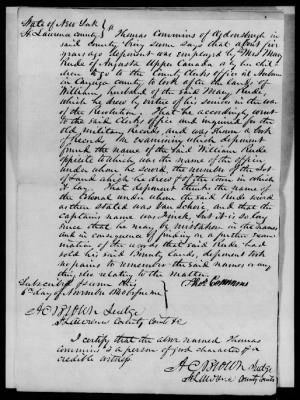 State of New York
St. Lawrence County } ss Thomas Commins of Ogdensburgh in
said County being sworn says that about five
years ago deponent was employed by Mrs Mary
Rude of Augusta Upper Canada & by her child-
ren to go to the County Clerks office at Auburn
in Cayuga county to look after the lands of
William, husband of the said Mary Rude,
which he drew by virtue of his service in the war
of the Revolution. That he accordingly went
to the said Clerks office and inquired for the
old military Records, and was shown a book
of Records. On examining which deponent
found the name of the said William Rude
opposite to which was the name of the officer
under whom he served, the number of the lot
of land which he drew & of the town in which
it lay. That deponent thinks the name of
the Colonel under whom the said Rude served
as then stated was Van Schaic, and that the
captains name was Finck, but it is so long
since that he may be mistaken in the names
and in consequence of finding on a further exam-
ination of the records that said Rude had
sold his said Bounty lands, deponent took
no pains to remember the said names or any
thing else relating to the matter.
Subscribed & sworn this Thos Commins
6th day of November 1840 before me
A C BROWN Judge
St Lawrence County Courts &c
I certify that the above named Thomas
Commins is a person of good character & a
credible witness.
A C BROWN Judge
St Lawrence County Courts